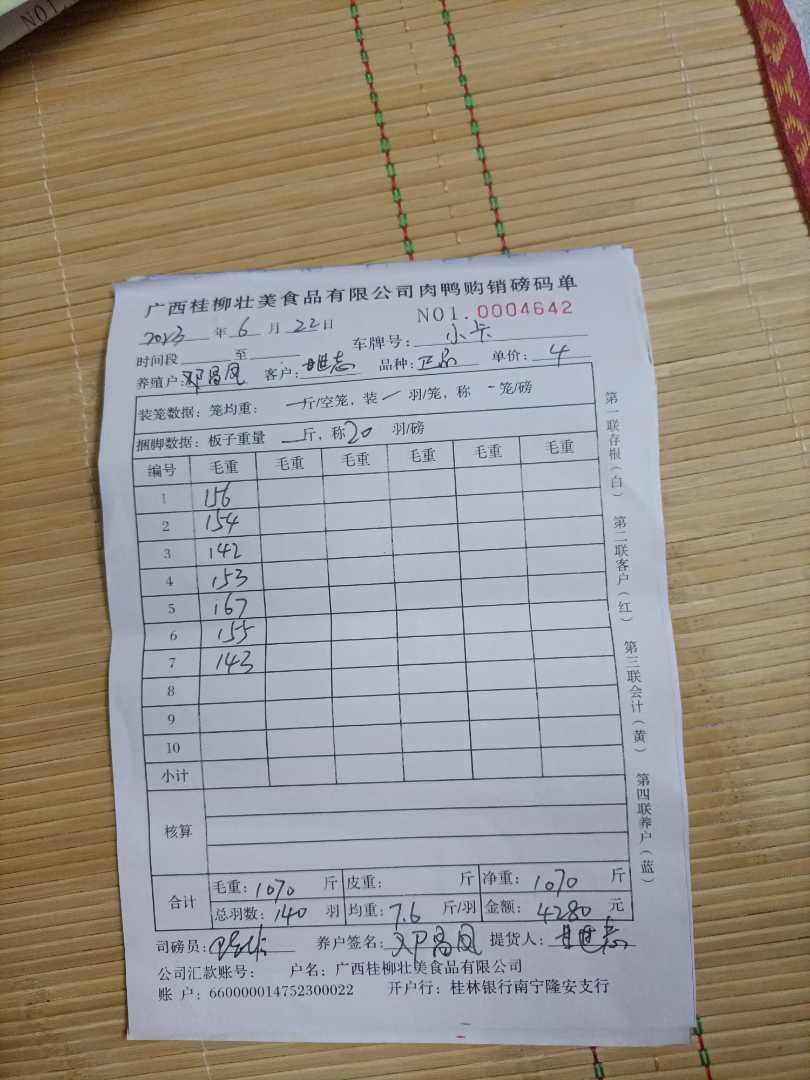 NO1.
广西桂柳壮美食品有限公司肉鸭购销磅码单
NO1.0004642
2023年6月22日
车牌号：小卡
时间段 至
养殖户：邓昌凤 客户：甘世志 品种：正品 单价：4
装笼数据：笼均重：一斤/空笼，装一羽/笼，称-笼/磅
捆脚数据：板子重量 一斤，称20羽/磅
编号 毛重 毛重 毛重 毛重 毛重 毛重
1 156
2 154
3 142
4 153
5 167
6 155
7 143
8
9
10
小计
核算
合计 毛重：1070斤 皮重： 斤 净重：1070斤
总羽数：140羽 均重：7.6斤/羽 金额：4280元
司磅员： 养户签名：邓昌凤 提货人：甘世志
公司汇款账号： 户名：广西桂柳壮美食品有限公司
账 户：660000014752300022 开户行：桂林银行南宁隆安支行
第一联存根（白） 第二联客户（红） 第三联会计（黄） 第四联养户（蓝）